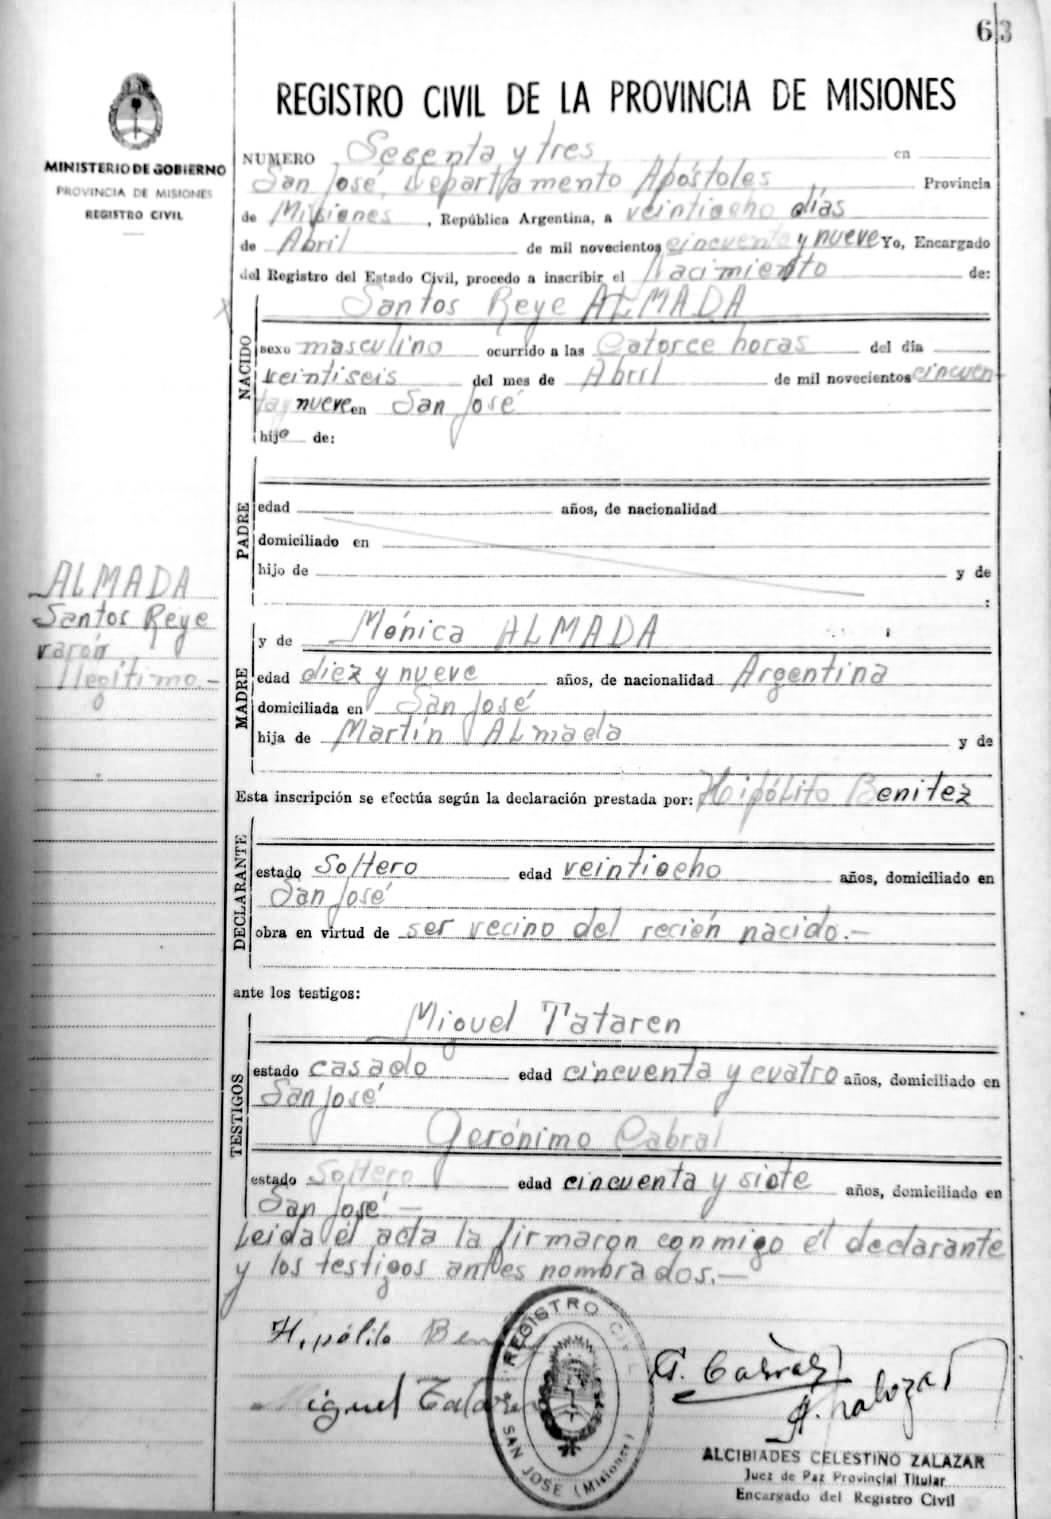 63
REGISTRO CIVIL DE LA PROVINCIA DE MISIONES
MINISTERIO DE GOBIERNO
PROVINCIA DE MISIONES
REGISTRO CIVIL
NUMERO Sesenta y tres en
San José, Departamento Apóstoles Provincia
de Misiones, República Argentina, a veintiocho días
de Abril de mil novecientos cincuenta y nueve Yo, Encargado
del Registro del Estado Civil, procedo a inscribir el Nacimiento de:
NACIDO
Santos Reye ALMADA
sexo masculino ocurrido a las Catorce horas del día
veintiseis del mes de Abril de mil novecientos cincuen-
ta y nueve en San José
hijo de:
PADRE
edad años, de nacionalidad
domiciliado en
hijo de y de
:
ALMADA
Santos Reye
varón
Ilegítimo.-
MADRE
y de Mónica ALMADA
edad diez y nueve años, de nacionalidad Argentina
domiciliada en San José
hija de Martín ALmada y de
Esta inscripción se efectúa según la declaración prestada por: Hipólito Benitez
DECLARANTE
estado Soltero edad veintiocho años, domiciliado en
San José
obra en virtud de ser vecino del recién nacido.-
ante los testigos:
TESTIGOS
Miguel Tataren
estado casado edad cincuenta y cuatro años, domiciliado en
San José
Gerónimo Cabral
estado Soltero edad cincuenta y siete años, domiciliado en
San José -
Leida él acta la firmaron conmigo él declarante
y los testigos antes nombrados.-
Hipólito
Miguel Tataren
G. Cabral
A. Zalazar
REGISTRO CIVIL
SAN JOSE (Misiones)
ALCIBIADES CELESTINO ZALAZAR
Juez de Paz Provincial Titular
Encargado del Registro Civil